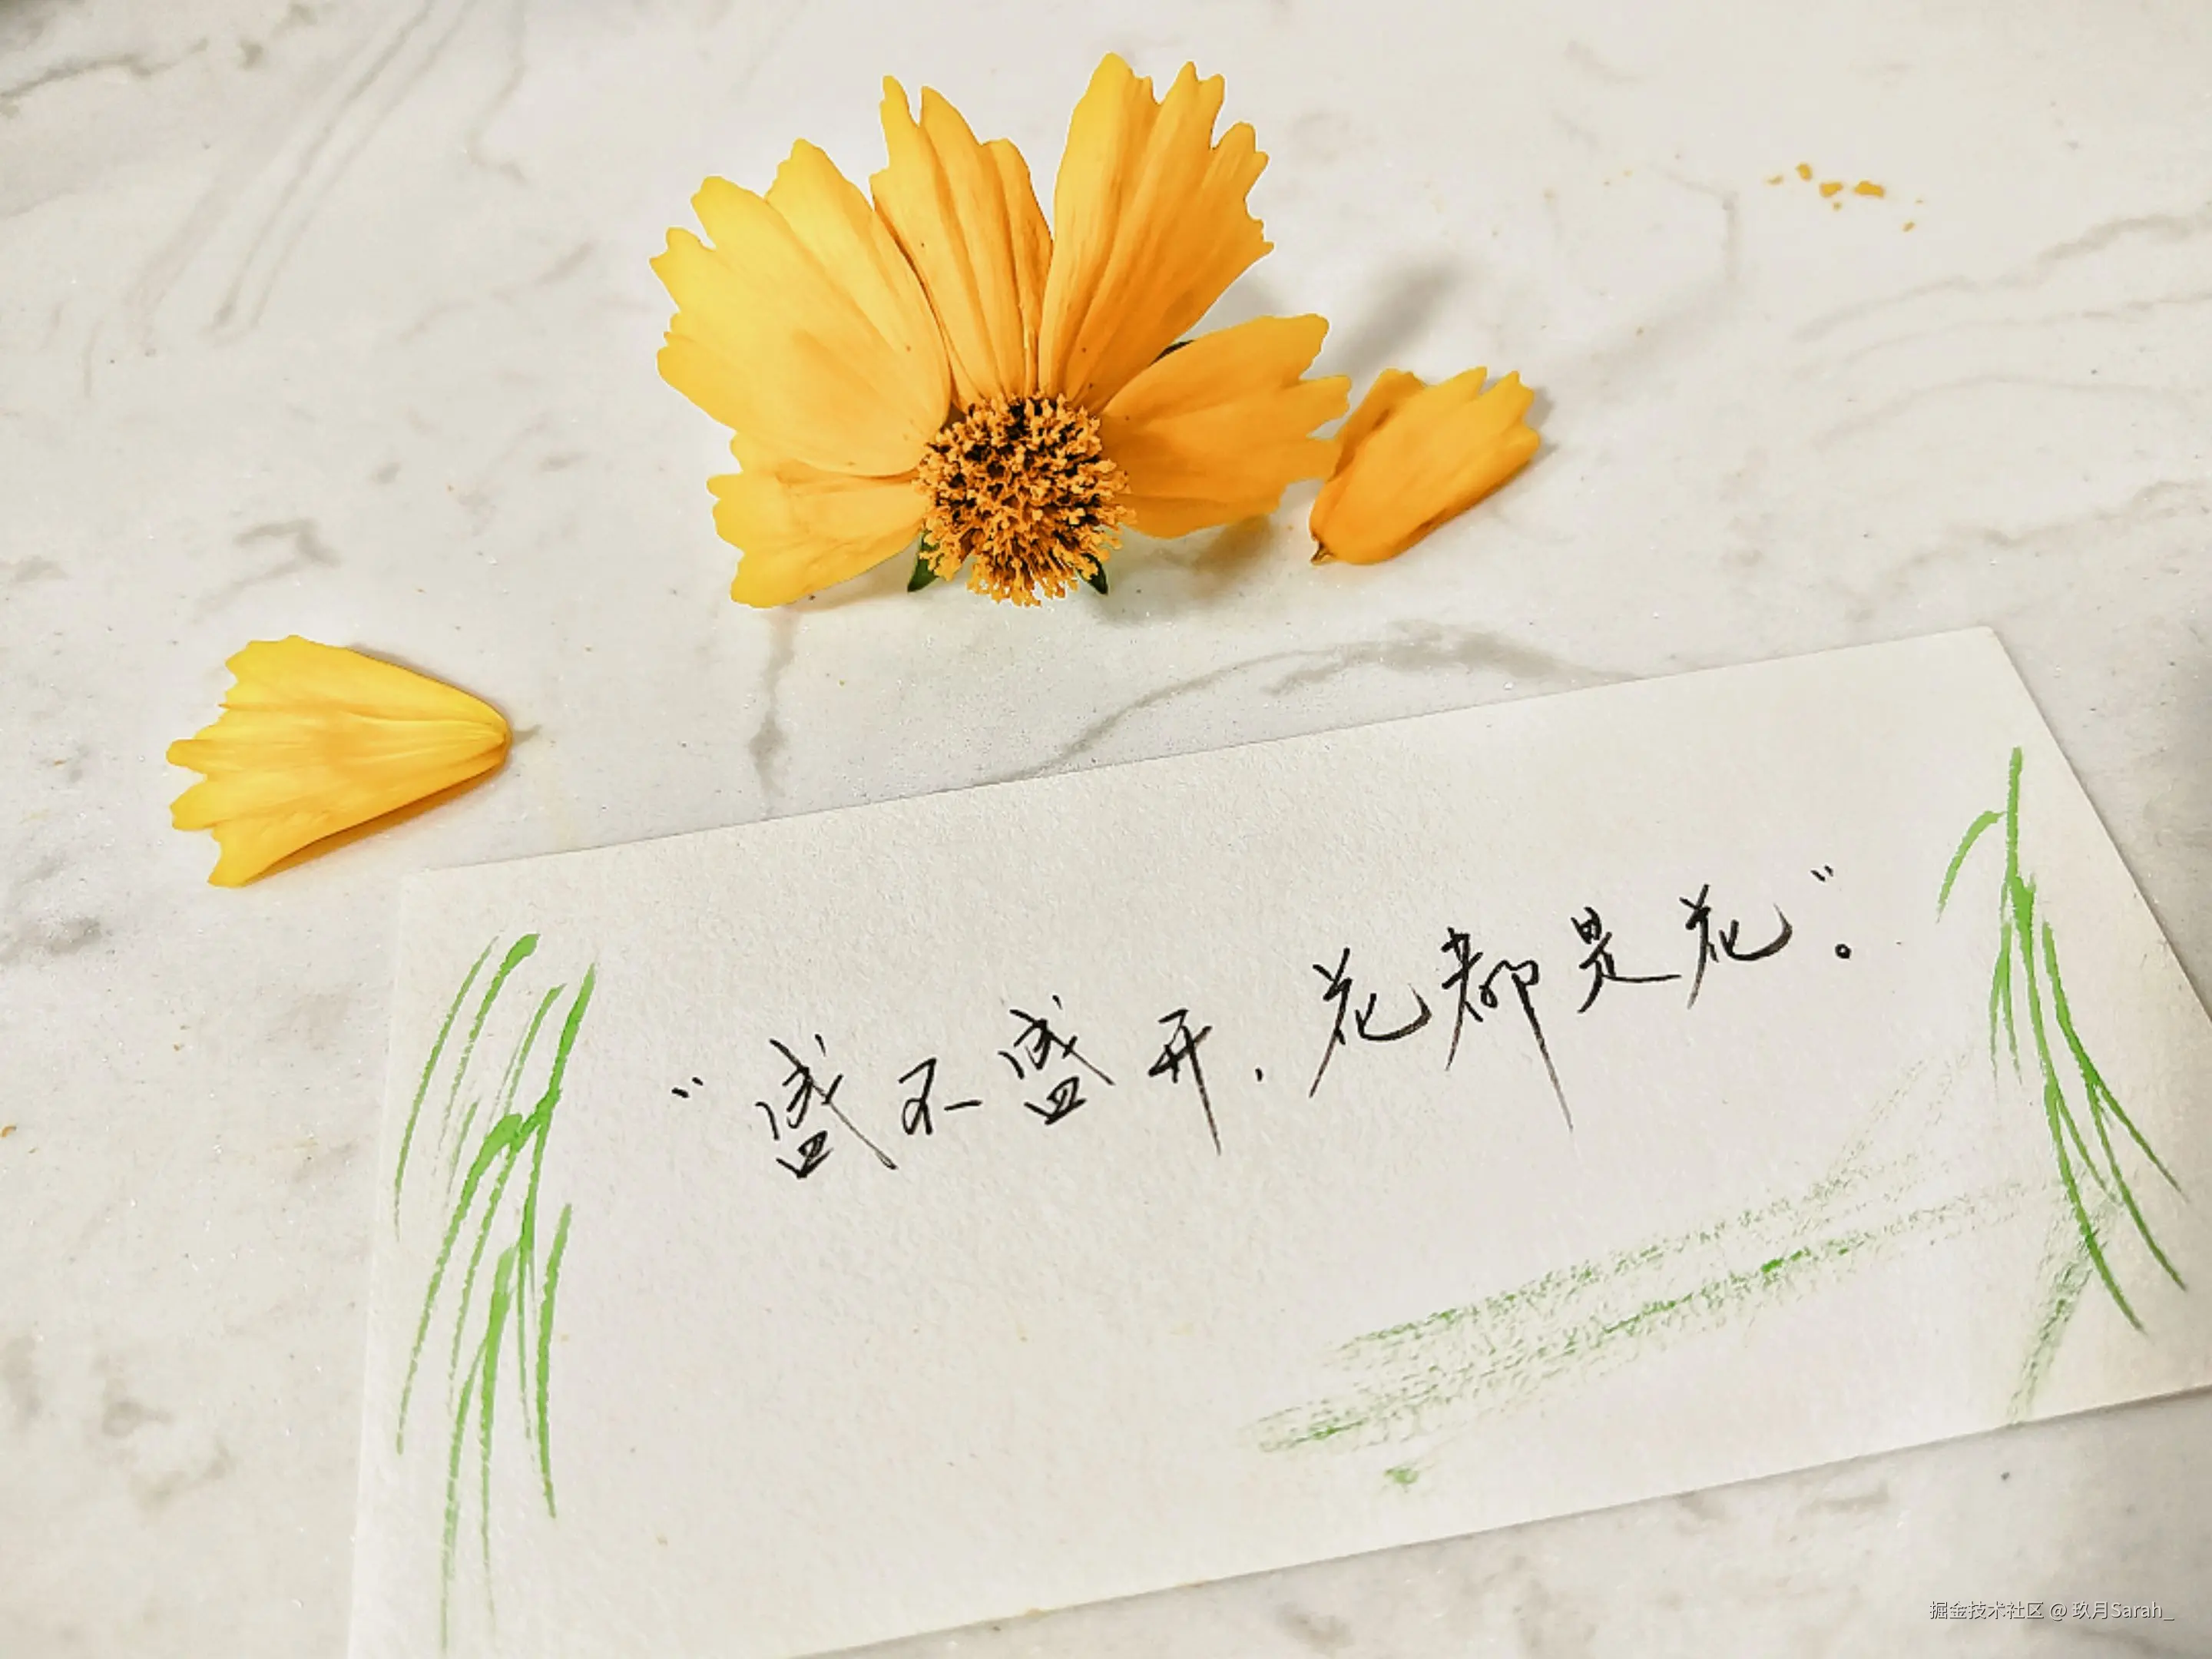 “盛不盛开，花都是花”。
掘金技术社区 @ 玖月Sarah_